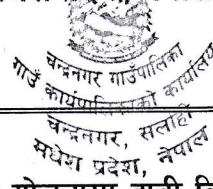 चन्द्रनगर गाउँपालिका
गाउँ कार्यपालिकाको कार्यालय
चन्द्रनगर, सर्लाही
मधेश प्रदेश, नेपाल